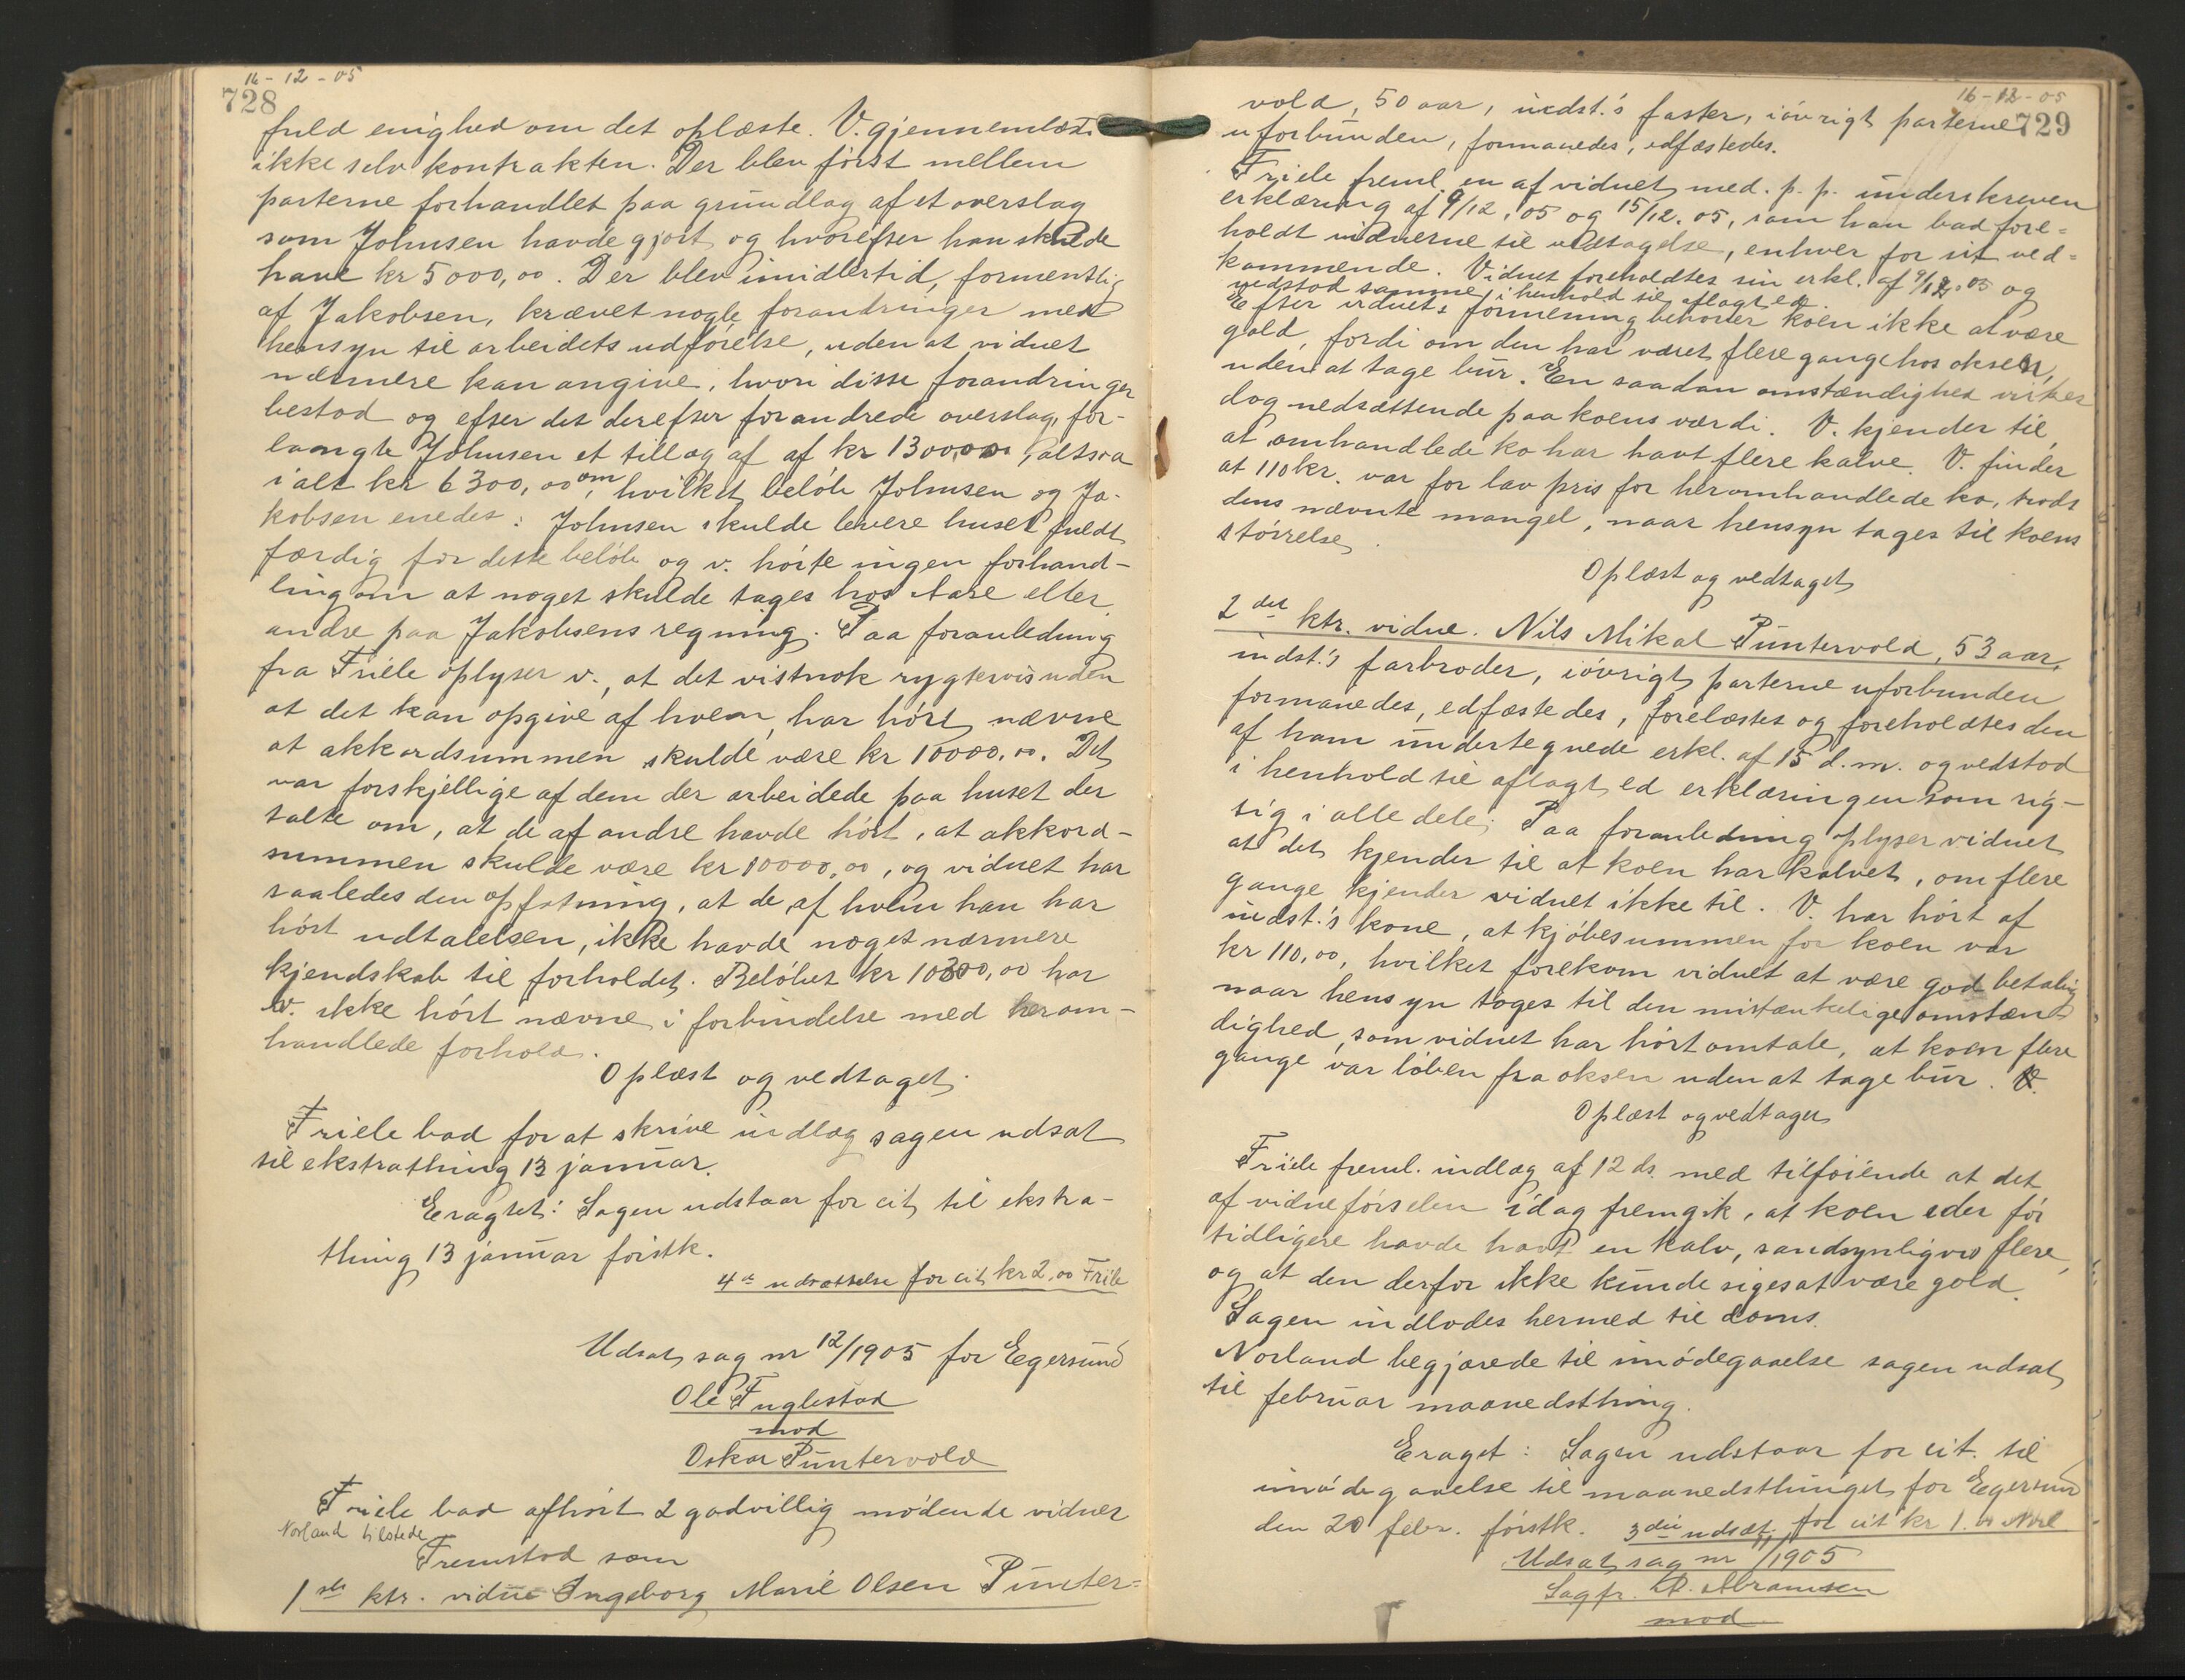 16-12-05
728
fuld enighed om det oplæste. V. gjennemlæste
ikke selv kontrakten. Der blev først mellem
parterne forhandlet paa grundlag af et overslag
som Johnsen havde gjort og hvorefter han skulde
have kr 5000,00. Der blev imidlertid, formentlig
af Jakobsen, krævet nogle forandringer med
hensyn til arbeidets udførelse, uden at vidnet
nærmere kan angive, hvori disse forandringer
bestod og efter det derefter forandrede overslag, for-
langte Johnsen et tillæg af af kr 1300,00, altsaa
i alt kr 6300,00, om hvilket beløb Johnsen og Ja-
kobsen enedes: Johnsen skulde levere huset fuldt
færdig for dette beløb og v. hørte ingen forhand-
ling om at noget skulde tages hos Aase eller
andre paa Jakobsens regning. Paa foranledning
fra Friele oplyser v., at det vistnok rygtevis uden
at det kan opgive af hvem, har hørt nævne
at akkordsummen skulde være kr 10000,00. Det
var forskjellige af dem der arbeidede paa huset der
talte om, at de af andre havde hørt, at akkord-
summen skulde være kr 10000,00, og vidnet har
saaledes den opfatning, at de af hvem han har
hørt udtalelsen, ikke havde noget nærmere
kjendskab til forholdet. Beløbet kr 10300,00 har
v. ikke hørt nævne i forbindelse med herom-
handlede forhold.
Oplæst og vedtaget.
Friele bad for at skrive indlæg sagen udsat
til ekstrathing 13 januar.
Eragtet: Sagen udstaar for cit. til ekstra-
thing 13 januar førstk.
4de udsættelse for cit. kr 2,00 Friele
Udsat sag nr 12/1905 for Egersund
Ole Fuglestad
mod
Oskar Puntervold
Friele bad afhørt 2 godvillig mødende vidner
Norland tilstede
Fremstod som
1ste ktr. vidne Ingeborg Marie Olsen Punter=
16-12-05
729
vold, 50 aar, indst.'s faster, iøvrigt parterne
uforbunden, formanedes, edfæstedes.
Friele freml. en af vidnet med. p. p. underskreven
erklæring af 9/12. 05 og 15/12. 05, som han bad fore=
holdt vidnerne til vedtagelse, enhver for sit ved=
kommende. Vidnet foreholdtes sin erkl. af 9/12. 05 og
vedstod samme i henhold til aflagt ed.
Efter vidnets formening behøver koen ikke at være
gold, fordi om den har været flere gange hos oksen,
uden at tage bur. En saadan omstændighed virker
dog nedsættende paa koens værdi. V. kjender til,
at omhandlede ko har havt flere kalve. V. finder
at 110 kr. var for lav pris for heromhandlede ko, trods
dens nævnte mangel, naar hensyn tages til koens
størrelse.
Oplæst og vedtaget
2det ktr. vidne. Nils Mikal Puntervold, 53 aar,
indst.'s farbroder, iøvrigt parterne uforbunden
formanedes, edfæstedes, forelæstes og foreholdtes den
af ham undertegnede erkl. af 15 d.m. og vedstod
i henhold til aflagt ed erklæringen som rig-
tig i alle dele. Paa foranledning oplyser vidnet
at det kjender til at koen har kalvet, om flere
gange kjender vidnet ikke til. V. har hørt af
indst.'s kone, at kjøbesummen for koen var
kr 110,00, hvilket forekom vidnet at være god betaling
naar hensyn toges til den mistænkelige omstæn
dighed, som vidnet har hørt omtale, at koen flere
gange var løben fra oksen uden at tage bur. V.
Oplæst og vedtaget
Friele freml. indlæg af 12 ds. med tilføiende at det
af vidneførselen idag fremgik, at koen eder før
tidligere havde havt en kalv, sandsynligvis flere,
og at den derfor ikke kunde siges at være gold.
Sagen indlodes hermed til doms.
Norland begjærede til imødegaaelse sagen udsat
til februar maanedsthing.
Eragt: Sagen udstaar for cit. til
imødegaaelse til maanedsthinget for Egersund
den 20 febr. førstk. 3die udsæt. for cit kr 1.00 Norl
Udsat sag nr /1905
Sagfr. A. Abramsen
mod